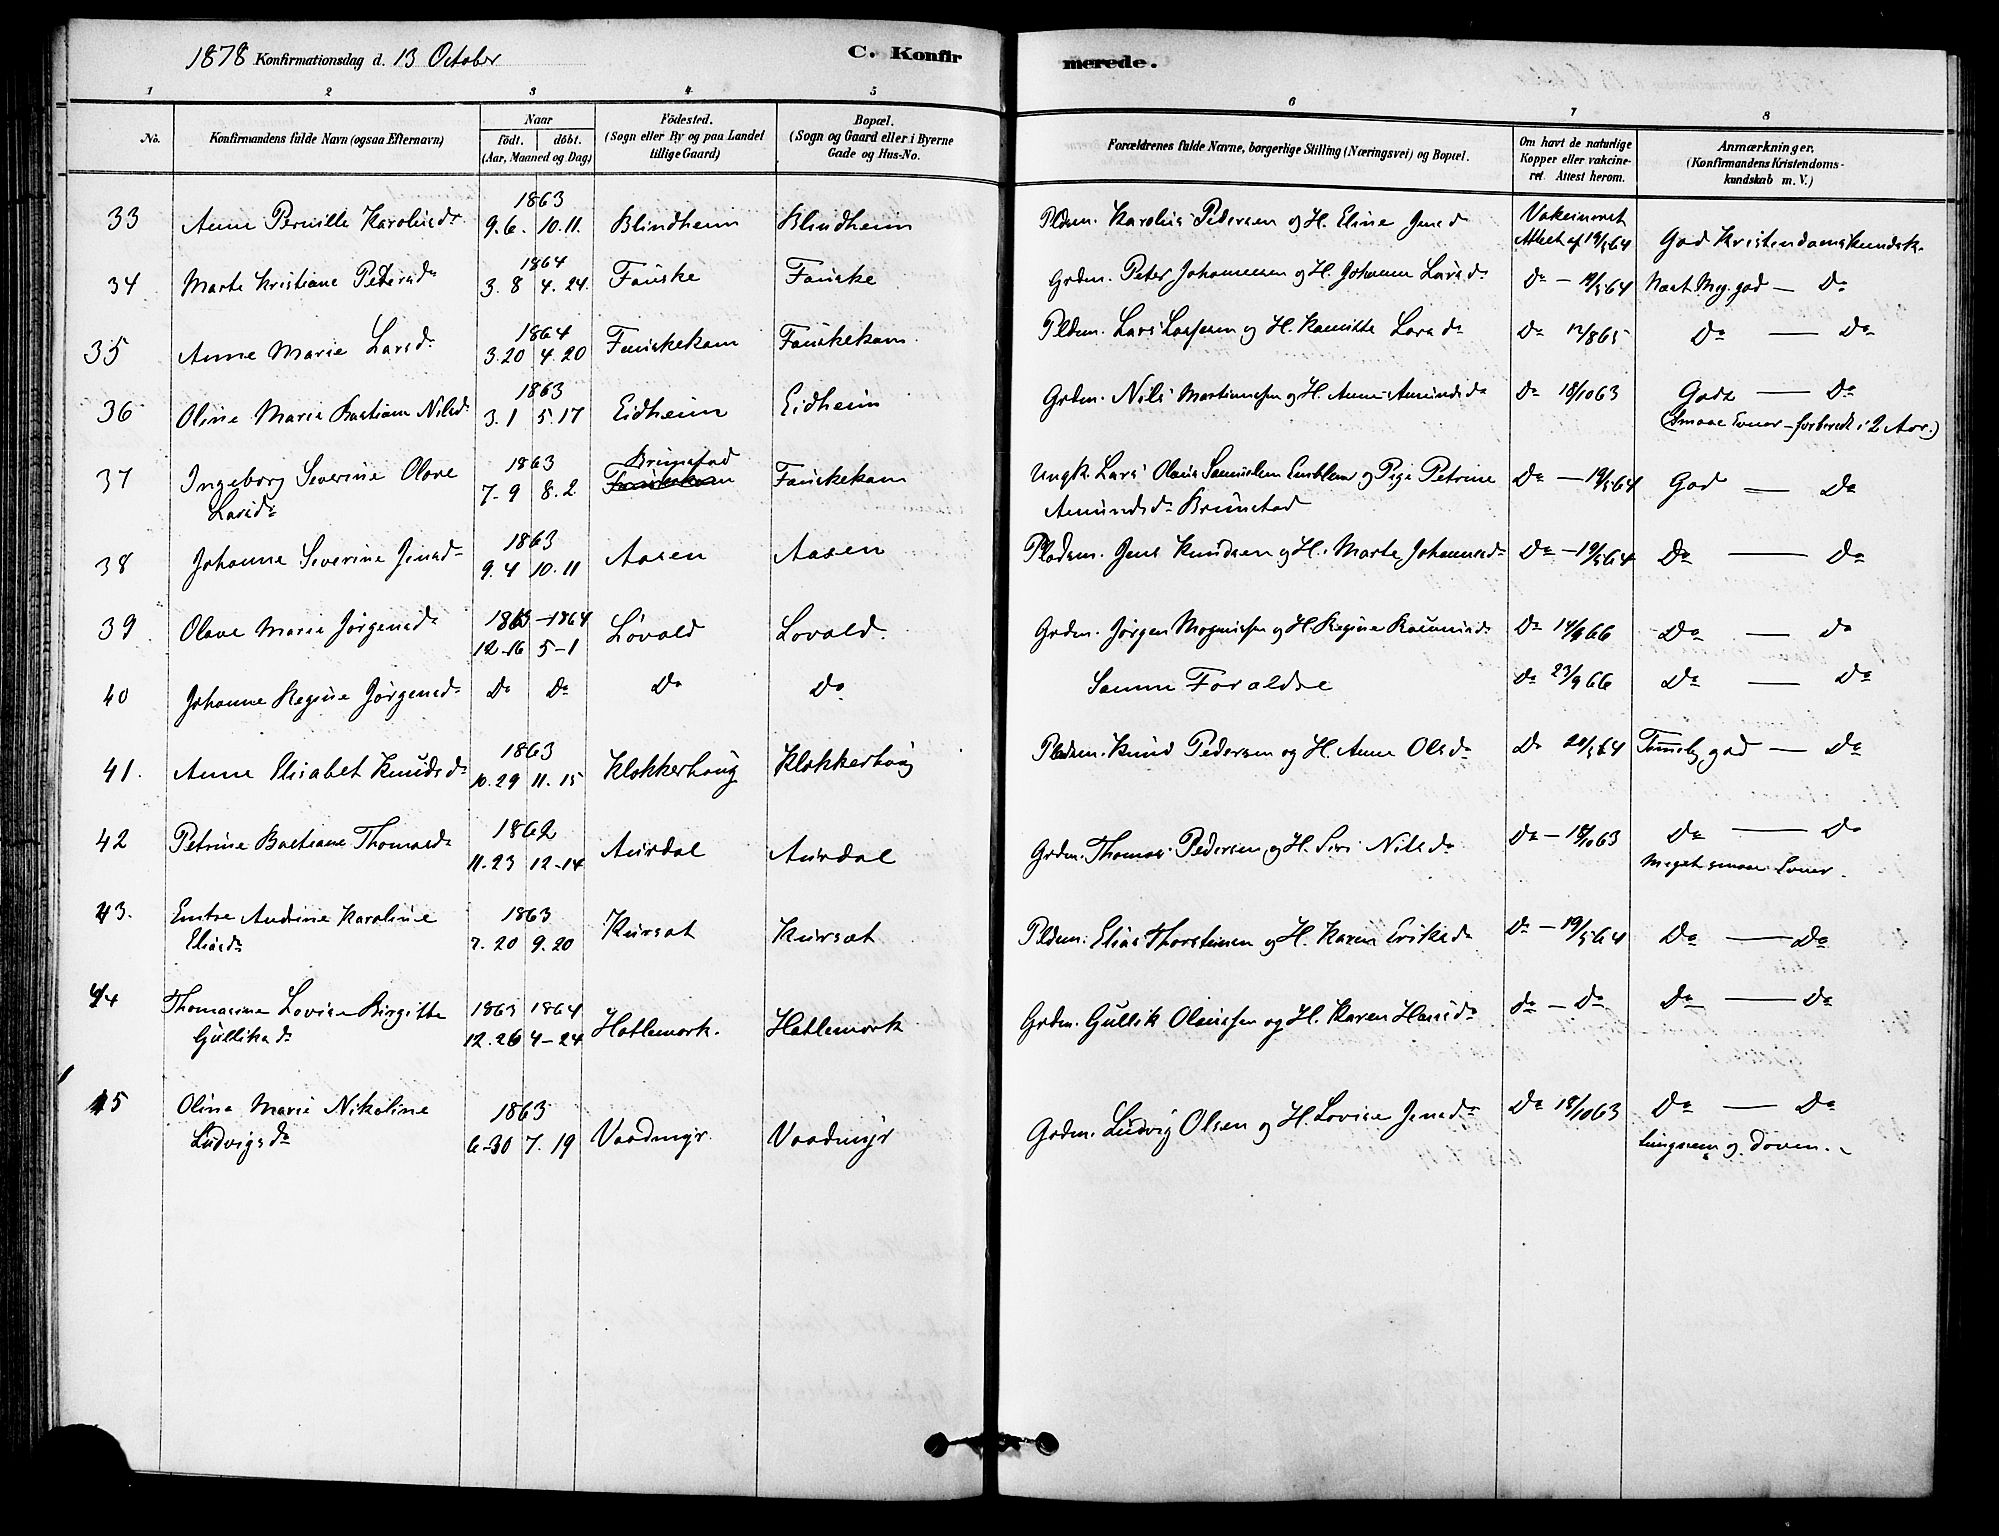 1878 Konfirmationsdag d. 13 October
C. Konfirmerede.
1 2 3 4 5 6 7 8
No.
Konfirmandens fulde Navn (ogsaa Efternavn)
Naar
födt. döbt.
(Aar, Maaned og Dag)
Födested.
(Sogn eller By og paa Landet
tillige Gaard)
Bopæl.
(Sogn og Gaard eller i Byerne
Gade og Hus-No.
Forældrenes fulde Navne, borgerlige Stilling (Næringsvei) og Bopæl.
Om havt de naturlige
Kopper eller vakcine-
ret. Attest herom.
Anmærkninger.
(Konfirmandens Kristendoms-
kundskab m. V.)
1863
33 Anne Pernille Karolusdr 9.6. 10.11. Blindheim Blindheim Pldsm. Karolus Pedersen og H. Eline Jensd Vakcineret
Attest af 19/5 64 God Kristendomskundsk.
1864
34 Marte Kristiane Petersdr 3.8 4.24. Fauske Fauske Grdm. Peter Johannesen og H. Johanne Larsdr Do - 19/5 64 Næst Mg. god - Do
1864
35 Anne Marie Larsdr 3.20 4.20 Fauskekam Fauskekam. Pldsm. Lars Larssen og H. Kamitte Larsdr Do 12/8 65 Do - Do
1863
36 Oline Marie Bastiane Nilsdr 3.1 5.17 Eidheim Eidheim Grdm. Nils Martinussen og H. Anne Amundsdr Do 18/10 63 Gode - Do
(Smaae Evner - forberedt i 2 Aar.)
1863 Brunstad
37 Ingeborg Severine Olave 7.9 8.2 Fauskekam Fauskekam Ungk. Lars Olaus Samuelsen Emblem og Pige Petrine Do - 19/5 64 God - Do
Larsdr Amundsdr Brunstad
1863
38 Johanne Severine Jensdr 9.4 10.11 Aasen Aasen Pladsm. Jens Knudsen og H. Marte Johannesdr Do - 19/5 64 Do - Do
1863 - 1864
39 Olave Marie Jørgensdr 12-16 5-1 Løvold Lovold. Grdm. Jørgen Mogenssen og H. Regine Rasmusdr Do 14/9 66 Do - Do
40 Johanne Regine Jørgensdr Do Do Do Do Samme Forældre Do 23/9 66 Do - Do
1863
41. Anne Elisabet Knudsdr 10.29 11.15 Klokkerhoug Klokkerhoug Pladsm. Knud Pedersen og H. Anne Olsdr Do 20/5 64 Temmelig god - Do
1862
42 Petrine Bastiane Thomasdr 11.23 12-14 Aurdal Aurdal Grdm. Thomas Pedersen og H. Siri Nilsdr Do - 18/10 63 Do - Do
Meget smaae Evner.
1863
43. Entse Andrine Karoline 7.20 9.20 Kursæt Kursæt Pldsm. Elias Thorsteinsen og H. Karen Eriksdr Do - 19/5 64 Do - Do
Eliasdr
44 Thomasine Lovise Birgitte 1863 1864
Gulliksdr 12.26 4-24 Hatlemork. Hatlemork Grdm. Gullik Olaussen og H. Karen Hansdr Do - Do Do - Do
45 Oline Marie Nikoline 1863
Ludvigsdr 6-30 7.19 Vaadmyr. Vaadmyr Grdm. Ludvig Olsen og H. Lovise Jensdr Do 18/10 63 Do - Do
tungnem og doven.